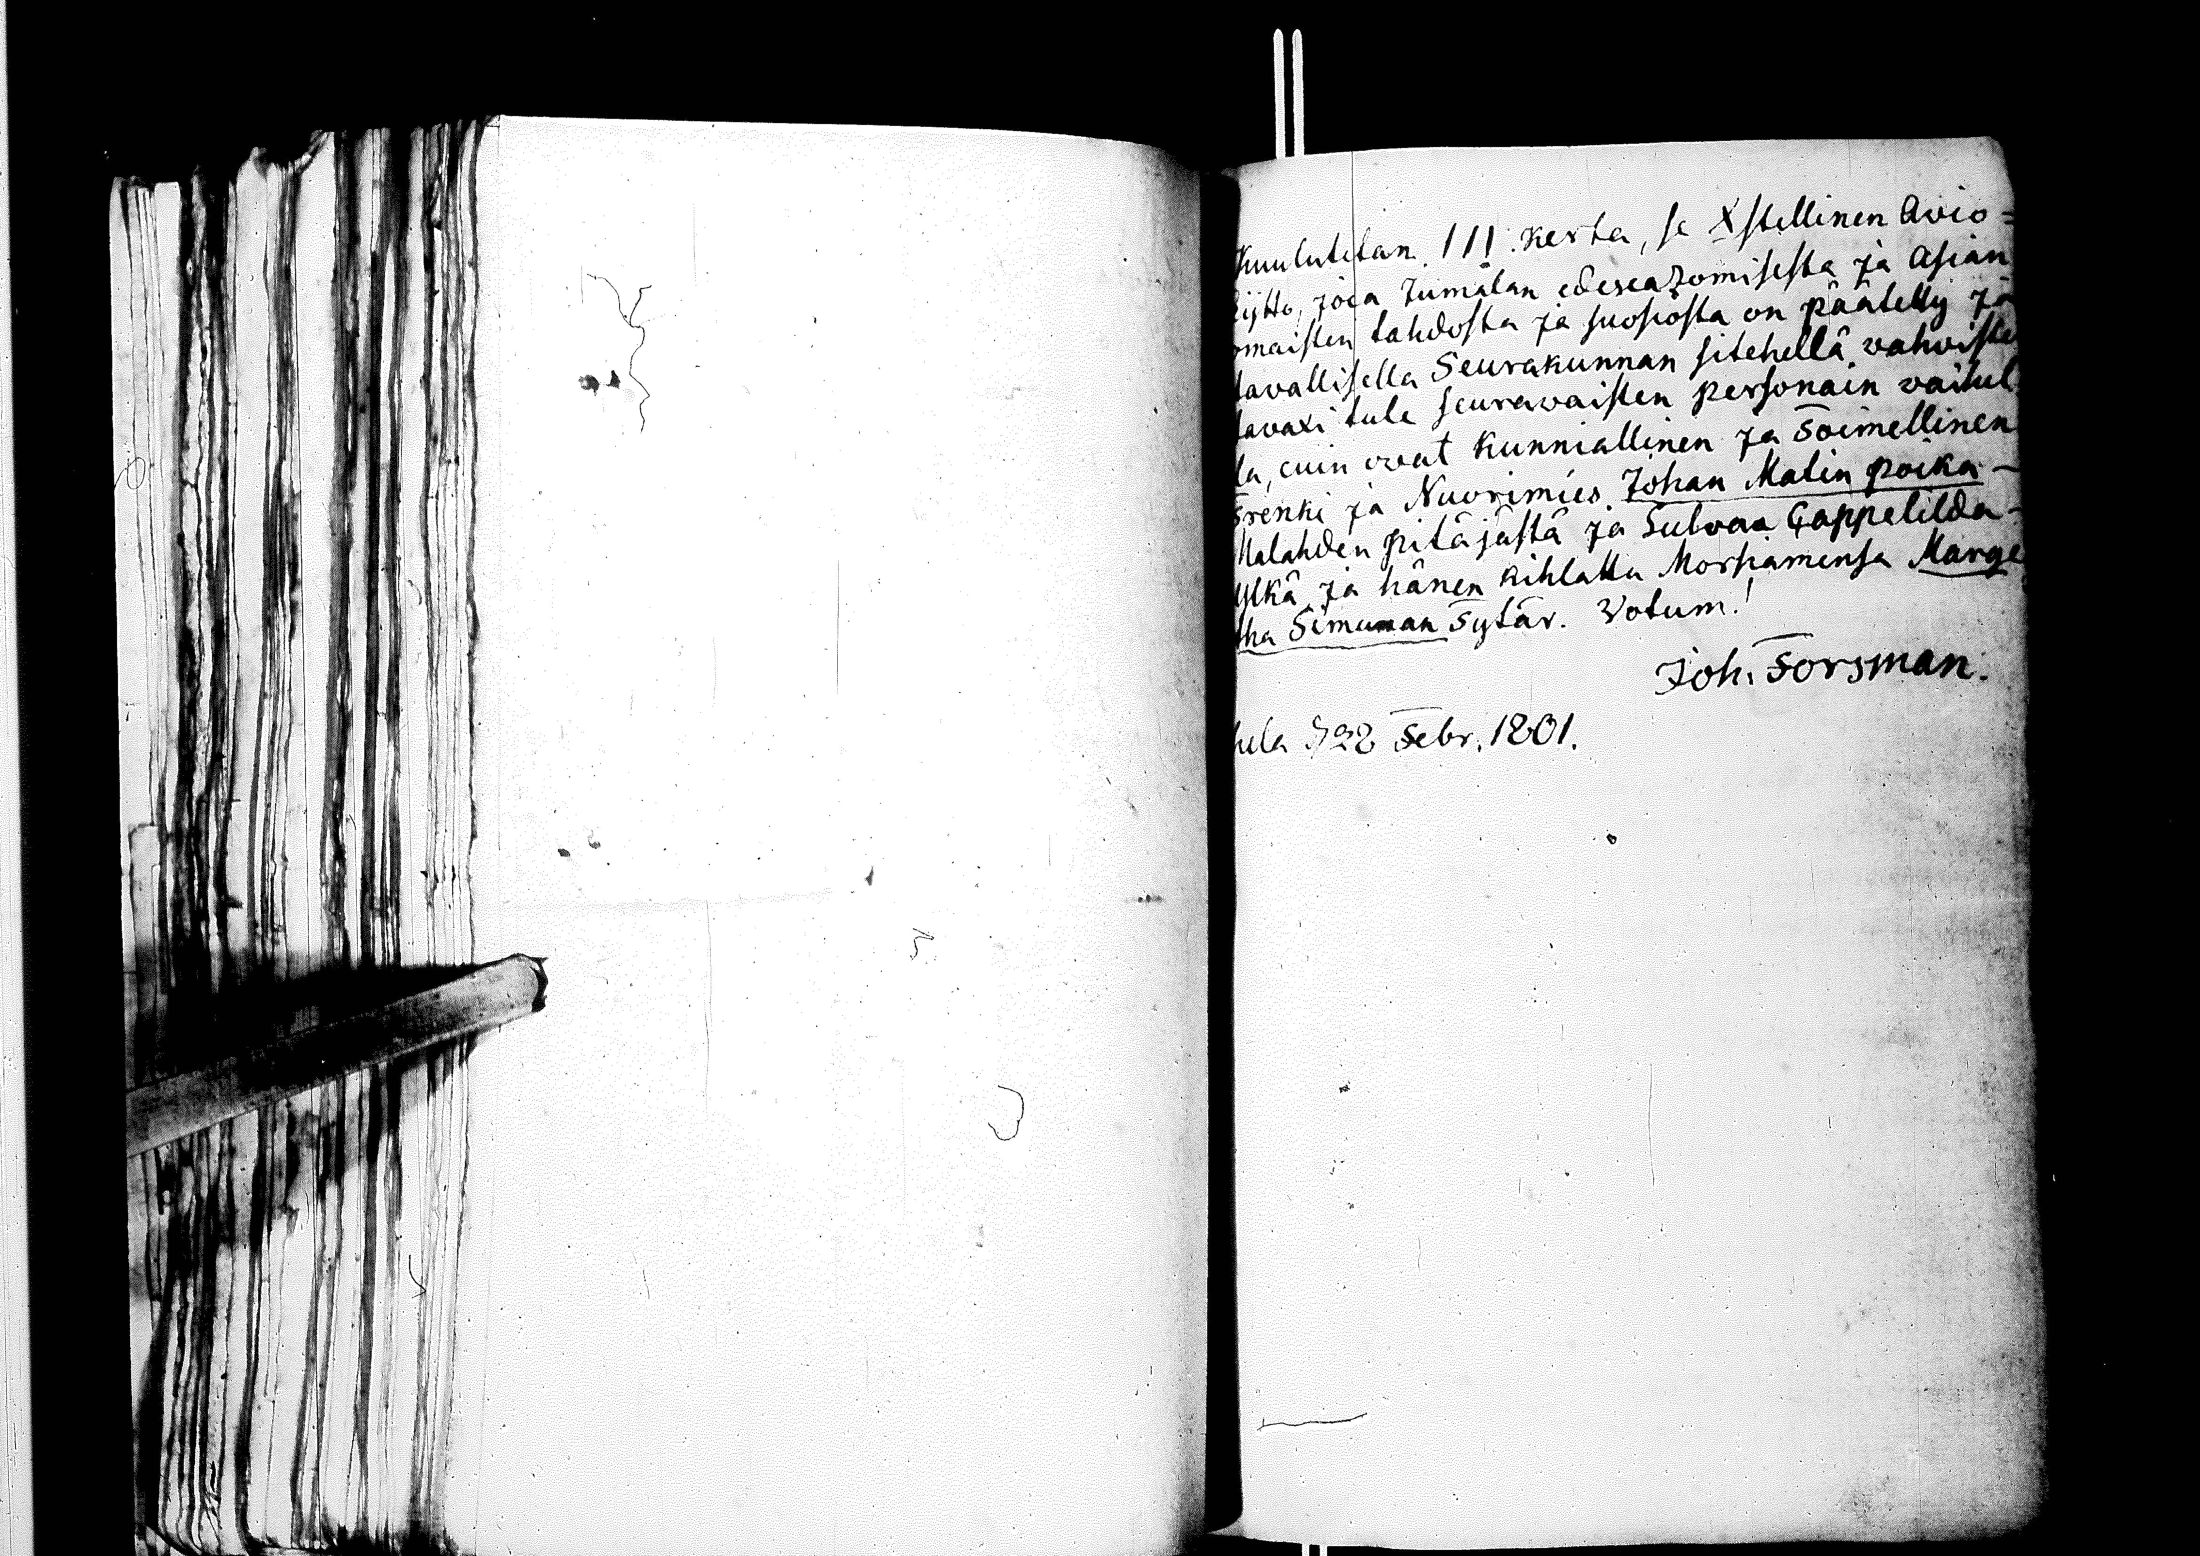 Kuulutetan III. kerta, se Xstellinen Avio=
kijtto, joca Jumalan edescazomisesta ja Asian
omaisten tahdosta ja suosiosta on päätetty ja
tavallisella Seurakunnan sitehellä vahviste
tavaxi tule seuravaisten personain vaihel
la, cuin ovat Kunniallinen ja Toimellinen
Trenki ja Nuorimies Johan Matin poika -
Malahden pitäjästä ja Sulvan Cappelilda -
ylkä ja hänen kihlattu Morsiamensa Marge
tha Simunan Tytär. Votum!
Joh. Forsman.
hela d 22 Febr. 1801.